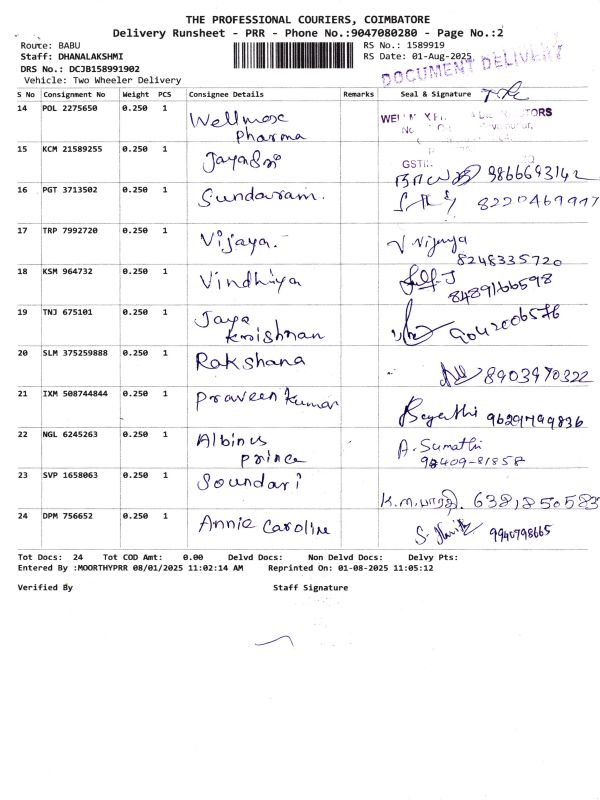 THE PROFESSIONAL COURIERS, COIMBATORE
Delivery Runsheet - PRR - Phone No.:9047080280 - Page No.:2
Route: BABU
RS No.: 1589919
Staff: DHANALAKSHMI
RS Date: 01-Aug-2025
DRS No.: DCJB158991902
DOCUMENT DELIVERY
Vehicle: Two Wheeler Delivery
S No Consignment No Weight PCS Consignee Details Remarks Seal & Signature
14 POL 2275650 0.250 1 Wellmox Pharma
15 KCM 21589255 0.250 1 Jayasri
GSTIN
9866693142
16 PGT 3713502 0.250 1 Sundaram. 8220469947
17 TRP 7992720 0.250 1 Vijaya. V. Vijaya
8248335720
18 KSM 964732 0.250 1 Vindhiya
8489166598
19 TNJ 675101 0.250 1 Jaya krishnan 9042006576
20 SLM 375259888 0.250 1 Rakshana 8903970322
21 IXM 508744844 0.250 1 Praveen kumar 9629799836
22 NGL 6245263 0.250 1 Albinus prince A. Sumathi
98409-81858
23 SVP 1658063 0.250 1 Soundari K.m.பாரதி. 6381850583
24 DPM 756652 0.250 1 Annie Caroline 9940798665
Tot Docs: 24 Tot COD Amt: 0.00 Delvd Docs: Non Delvd Docs: Delvy Pts:
Entered By :MOORTHYPRR 08/01/2025 11:02:14 AM Reprinted On: 01-08-2025 11:05:12
Verified By Staff Signature